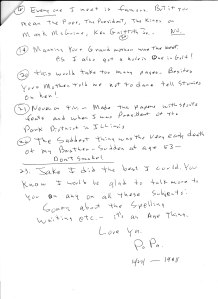 (17) Everyone I meet is famous. But if you
mean The Pope, The President, The Kings or
Mark McGuire, Ken Griffith Jr. - No.
(18)
(19) Marrying Your Grandmother was the best.
P.S. I also got a hole in one in Golf!
(20) This would take too many pages. Besides
Your Mother told me not to dare tell stories
on her!
(21) Never on TV - Made the papers with sports
feats and when I was President of the
Park District in Illinois
(22) The Saddest thing was the very early death
of my Brother - Sudden at age 53 -
Don't Smoke!
23. Jake I did the best I could. You
know I would be glad to talk more to
you on any or all these subjects.
Sorry about the Spelling
writing etc - it's an Age Thing.
Love Ya.
PoPo.
- 1998